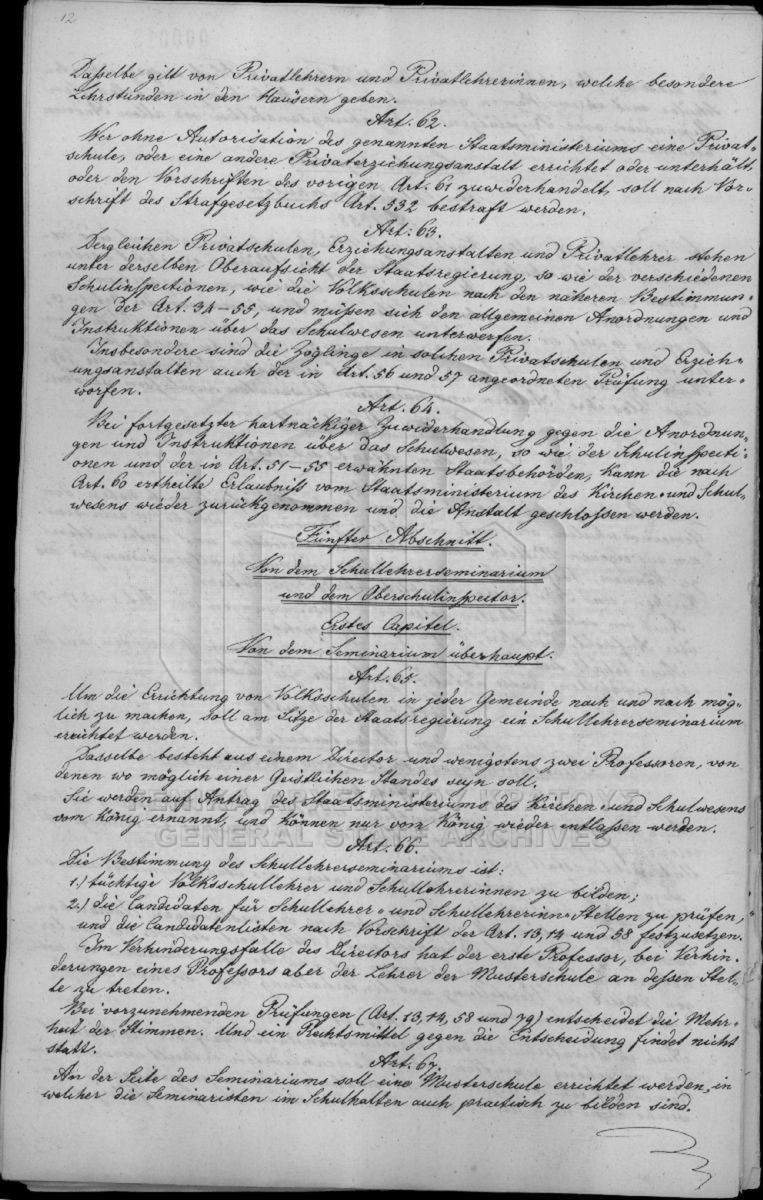 12
Daßelbe gilt von Privatlehrern und Privatlehrerinnen, welche besondere
Lehrstunden in den Haüsern geben.
Art. 62.
Wer ohne Autorisation des genannten Staatsministeriums eine Privat-
schule, oder eine andere Privaterziehungsanstalt errichtet oder unterhält,
oder den Vorschriften des vorigen Art. 61 zuwiderhandelt, soll nach Vor-
schrift des Strafgesetzbuchs Art. 532 bestraft werden.
Art. 63.
Dergleichen Privatschulen, Erziehungsanstalten und Privatlehrer stehen
unter derselben Oberaufsicht der Staatsregierung, so wie der verschiedenen
Schulinspectionen, wie die Volksschulen nach den näheren Bestimmun-
gen der Art. 34–55, und müßen sich den allgemeinen Anordnungen und
Instruktionen über das Schulwesen unterwerfen.
Insbesondere sind die Zöglinge in solchen Privatschulen und Erzieh-
ungsanstalten auch der in Art. 56 und 57 angeordneten Prüfung unter-
worfen.
Art. 64.
Bei fortgesetzter hartnäckiger Zuwiderhandlung gegen die Anordnun-
gen und Instruktionen über das Schulwesen, so wie der Schulinspecti-
onen und der in Art. 51–55 erwähnten Staatsbehörden, kann die nach
Art. 60 ertheilte Erlaubniß vom Staatsministerium des Kirchen- und Schul-
wesens wieder zurückgenommen und die Anstalt geschloßen werden.
Fünfter Abschnitt.
Von dem Schullehrerseminarium
und dem Oberschulinspector.
Erstes Capitel.
Von dem Seminarium überhaupt.
Art. 65.
Um die Errichtung von Volksschulen in jeder Gemeinde nach und nach mög-
lich zu machen, soll am Sitze der Staatsregierung ein Schullehrerseminarium
errichtet werden.
Dasselbe besteht aus einem Director und wenigstens zwei Professoren, von
denen wo möglich einer Geistlichen Standes seyn soll.
Sie werden auf Antrag des Staatsministeriums des Kirchen- und Schulwesens
vom König ernannt, und können nur vom König wieder entlaßen werden.
GENERAL STATE ARCHIVES
Art. 66.
Die Bestimmung des Schullehrerseminariums ist:
1.) tüchtige Volksschullehrer und Schullehrerinnen zu bilden;
2.) die Candidaten für Schullehrer- und Schullehrerinn-Stellen zu prüfen,
und die Candidatenlisten nach Vorschrift der Art. 13, 14 und 58 festzusetzen.
Im Verhinderungsfalle des Directors hat der erste Professor, bei Verhin-
derungen eines Profeßors aber der Lehrer der Musterschule an deßen Stel-
le zu treten.
Bei vorzunehmenden Prüfungen (Art. 13, 14, 58 und 79) entscheidet die Mehr-
heit der Stimmen. Und ein Rechtsmittel gegen die Entscheidung findet nicht
statt.
Art. 67.
An der Seite des Seminariums soll eine Musterschule errichtet werden, in
welcher die Seminaristen im Schulhalten auch practisch zu bilden sind.